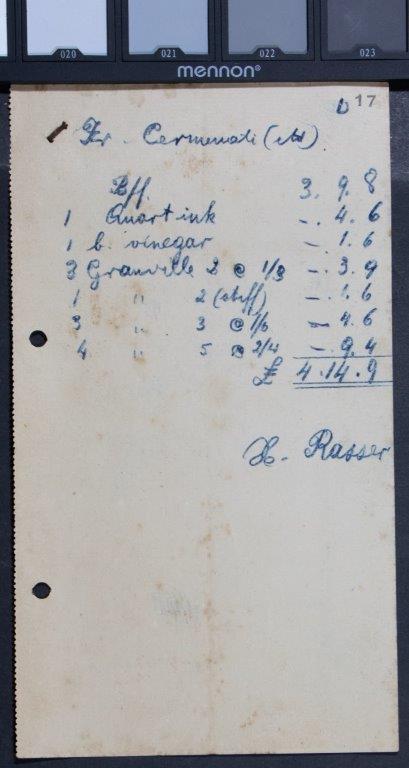 020 021 022 023
mennon®
D 17
Fr. Cermenati (M)
Bff. 3. 9. 8
1 Quart ink -. 4. 6
1 b. vinegar -. 1. 6
3 Granville 2 @ 1/3 -. 3. 9
1 " 2 (stiff) -. 1. 6
3 " 3 @ 1/6 - 4. 6
4 " 5 @ 2/4 - 9. 4
£ 4. 14. 9
H. Rasser